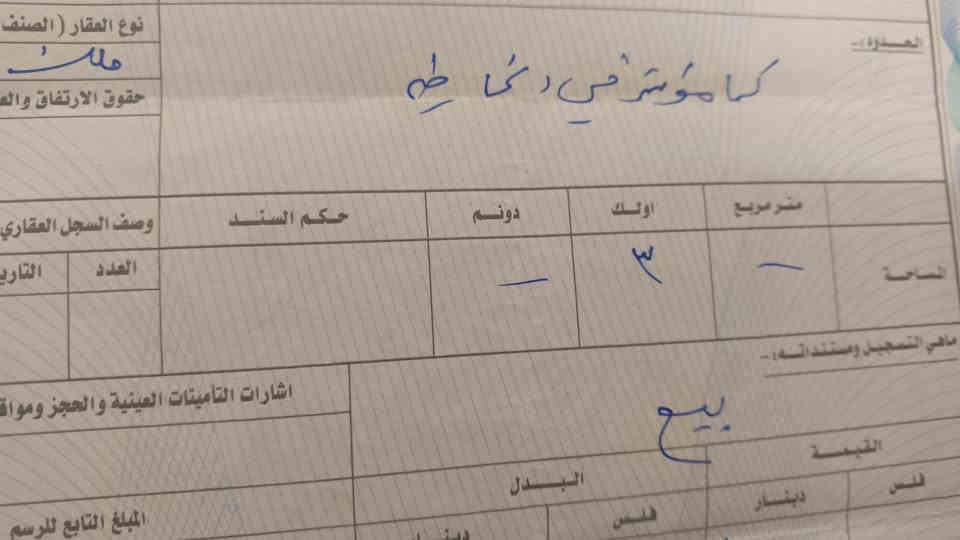 الحدود:-
كما مؤشر في الخارطه
نوع العقار (الصنف
ملك
حقوق الارتفاق والع
متر مربع اولك دونم حكم السند وصف السجل العقاري
المساحة — ٣ — العدد التاري
ماهي التسجيل ومستنداته:-
بيع
اشارات التأمينات العينية والحجز ومواق
القيمة البدل
فلس دينار فلس دينار
المبلغ التابع للرسم